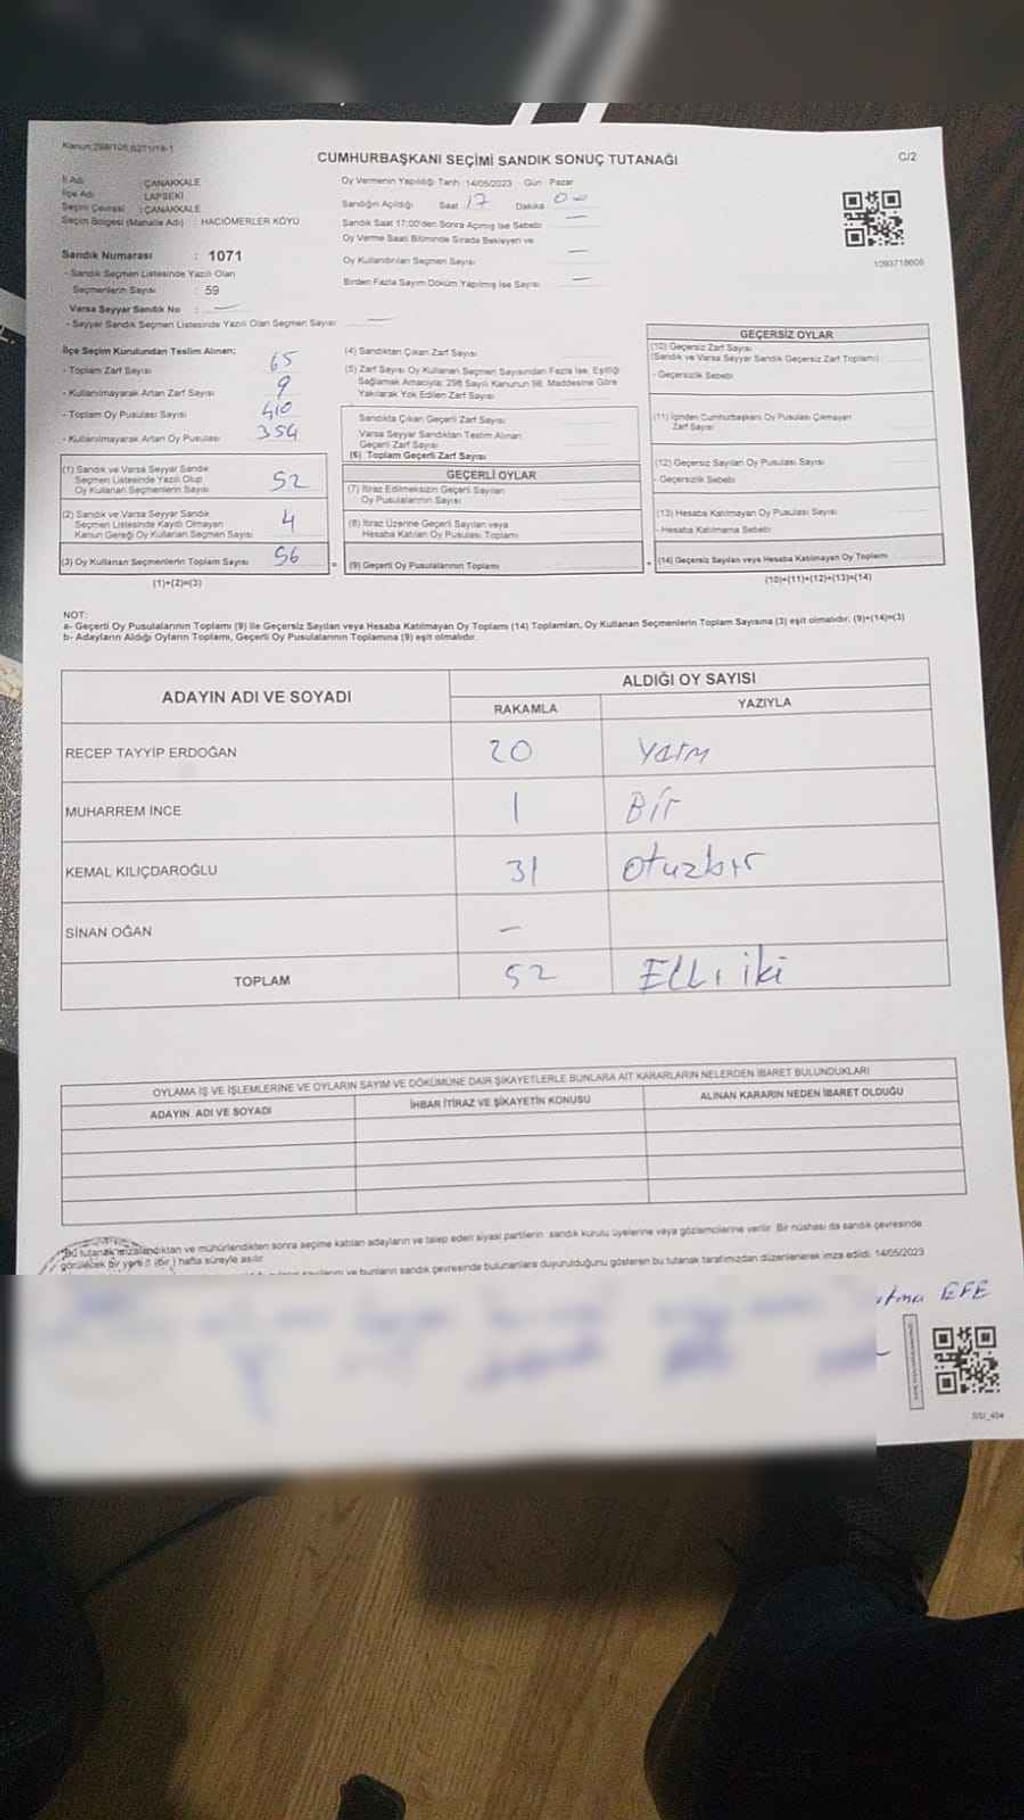 Kanun:298/105,6271/19-1
CUMHURBAŞKANI SEÇİMİ SANDIK SONUÇ TUTANAĞI
C/2
İl Adı : ÇANAKKALE
İlçe Adı : LAPSEKİ
Seçim Çevresi : ÇANAKKALE
Seçim Bölgesi (Mahalle Adı) : HACIÖMERLER KÖYÜ
Sandık Numarası : 1071
- Sandık Seçmen Listesinde Yazılı Olan
Seçmenlerin Sayısı : 59
Varsa Seyyar Sandık No : —
- Seyyar Sandık Seçmen Listesinde Yazılı Olan Seçmen Sayısı —
Oy Vermenin Yapıldığı Tarih: 14/05/2023 Gün: Pazar
Sandığın Açıldığı Saat 17 Dakika
Sandık Saat 17:00'den Sonra Açılmış İse Sebebi —
Oy Verme Saati Bitiminde Sırada Bekleyen ve
Oy Kullandırılan Seçmen Sayısı —
Birden Fazla Sayım Döküm Yapılmış İse Sayısı —
1293718608
İlçe Seçim Kurulundan Teslim Alınan;
- Toplam Zarf Sayısı 65
- Kullanılmayarak Artan Zarf Sayısı 9
- Toplam Oy Pusulası Sayısı 410
- Kullanılmayarak Artan Oy Pusulası 354
(1) Sandık ve Varsa Seyyar Sandık
Seçmen Listesinde Yazılı Olup
Oy Kullanan Seçmenlerin Sayısı 52
(2) Sandık ve Varsa Seyyar Sandık
Seçmen Listesinde Kayıtlı Olmayan
Kanun Gereği Oy Kullanan Seçmen Sayısı 4
(3) Oy Kullanan Seçmenlerin Toplam Sayısı 56
(1)+(2)=(3)
(4) Sandıktan Çıkan Zarf Sayısı
(5) Zarf Sayısı Oy Kullanan Seçmen Sayısından Fazla İse, Eşitliği
Sağlamak Amacıyla; 298 Sayılı Kanunun 98. Maddesine Göre
Yakılarak Yok Edilen Zarf Sayısı
Sandıkta Çıkan Geçerli Zarf Sayısı
Varsa Seyyar Sandıktan Teslim Alınan
Geçerli Zarf Sayısı
(6) Toplam Geçerli Zarf Sayısı
GEÇERLİ OYLAR
(7) İtiraz Edilmeksizin Geçerli Sayılan
Oy Pusulalarının Sayısı
(8) İtiraz Üzerine Geçerli Sayılan veya
Hesaba Katılan Oy Pusulası Toplamı
(9) Geçerli Oy Pusulalarının Toplamı
GEÇERSİZ OYLAR
(10) Geçersiz Zarf Sayısı
(Sandık ve Varsa Seyyar Sandık Geçersiz Zarf Toplamı)
- Geçersizlik Sebebi
(11) İçinden Cumhurbaşkanı Oy Pusulası Çıkmayan
Zarf Sayısı
(12) Geçersiz Sayılan Oy Pusulası Sayısı
- Geçersizlik Sebebi
(13) Hesaba Katılmayan Oy Pusulası Sayısı
- Hesaba Katılmama Sebebi
(14) Geçersiz Sayılan veya Hesaba Katılmayan Oy Toplamı
(10)+(11)+(12)+(13)=(14)
NOT:
a- Geçerli Oy Pusulalarının Toplamı (9) ile Geçersiz Sayılan veya Hesaba Katılmayan Oy Toplamı (14) Toplamları, Oy Kullanan Seçmenlerin Toplam Sayısına (3) eşit olmalıdır. (9)+(14)=(3)
b- Adayların Aldığı Oyların Toplamı, Geçerli Oy Pusulalarının Toplamına (9) eşit olmalıdır.
ADAYIN ADI VE SOYADI
ALDIĞI OY SAYISI
RAKAMLA YAZIYLA
RECEP TAYYİP ERDOĞAN 20
MUHARREM İNCE 1 Bir
KEMAL KILIÇDAROĞLU 31 Otuzbir
SİNAN OĞAN —
TOPLAM 52 ELLi iki
OYLAMA İŞ VE İŞLEMLERİNE VE OYLARIN SAYIM VE DÖKÜMÜNE DAİR ŞİKAYETLERLE BUNLARA AİT KARARLARIN NELERDEN İBARET BULUNDUKLARI
ADAYIN ADI VE SOYADI İHBAR İTİRAZ VE ŞİKAYETİN KONUSU ALINAN KARARIN NEDEN İBARET OLDUĞU
Bu tutanak imzalandıktan ve mühürlendikten sonra seçime katılan adayların ve talep eden siyasi partilerin sandık kurulu üyelerine veya gözlemcilerine verilir. Bir nüshası da sandık çevresinde
görülecek bir yere (1 (bir) hafta süreyle asılır.
ve bunların sandık çevresinde bulunanlara duyurulduğunu gösteren bu tutanak tarafımızdan düzenlenerek imza edildi. 14/05/2023
EFE